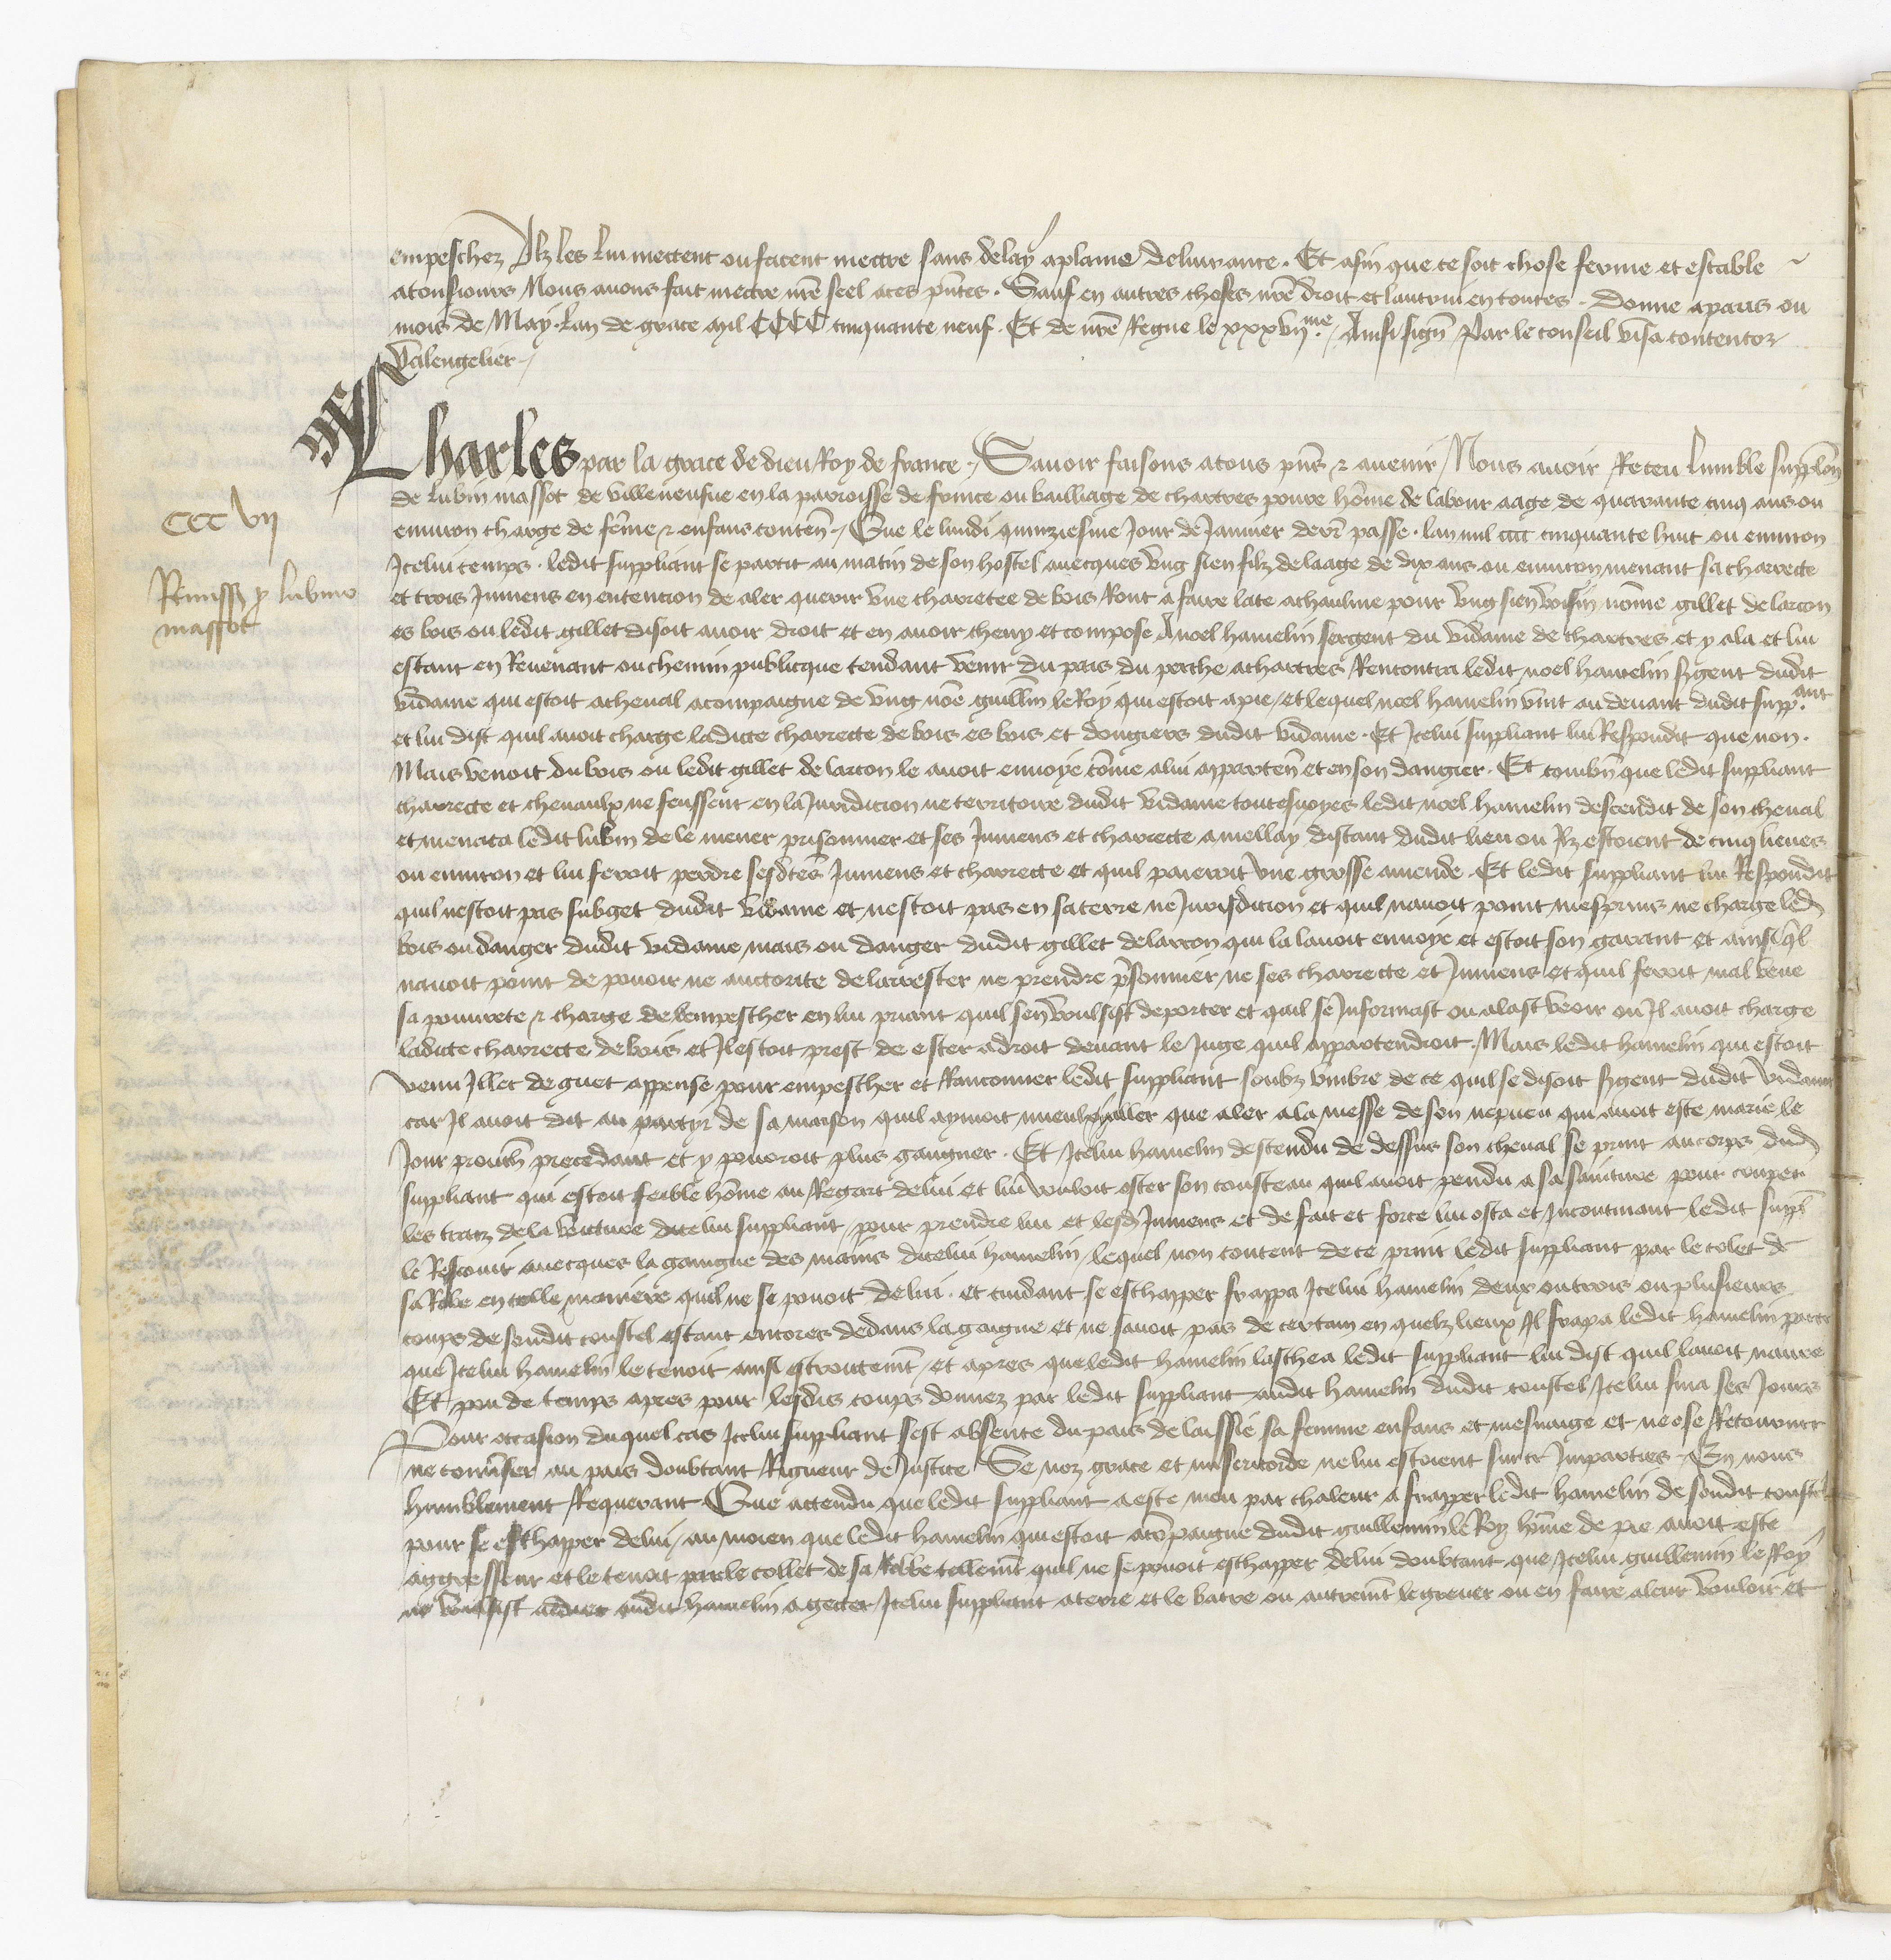 empeschez Ilz les lui mectent ou facent mectre sans delay aplaine deliurance. Et afin que ce soit chose ferme et estable
atousiours Nous auons fait mectre nre seel aces pntes. Sauf en autres choses nre droit et lautrui en toutes. Donne a paris ou
mois de May. Lan de grace mil CCCC cinquante neuf. Et de nre Regne le xxxvij me. Ainsi sign Par le conseil visa contentor
Valengelier
Charles par la grace de dieu Roy de france. Sauoir faisons atous pns & auenir Nous auoir Receu lumble supplon
de lubin massot de villeneufue en la parroisse de frunce ou bailliage de chartres poure home de labour aage de quarante cinq ans ou
CCC VII
enuiron charge de feme & enfans conten. Que le lundi quinziesme Jour de Januier dern passe. lan mil cccc cinquante huit ou enuiron
Icelui temps. ledit suppliant se partit au matin de son hostel auecques vng sien filz de laage de dix ans ou enuiron menant sa charrecte
Remiss p lubino
massot
et trois Jumens en entencion de aler querir vne charretee de bois Ront a faire late achaulme pour vng sien voisin nome gillet de larcon
es bois ou ledit gillet disoit auoir droit et en auoir cheuy et compose A noel hamelin sergent du vidame de chartres et y ala et lui
estant en Reuenant ou chemin publicque tendant venir du pais du perche achartres Rencontra ledit noel hamelin sgent dudit
vidame qui estoit acheual acompaigne de vng nome guillin le Roy qui estoit apie, et lequel noel hamelin vint au deuant dudit supp.ant
et lui dist quil auoit charge ladicte charrecte de bois es bois et dongiers dudit vidame. Et Icelui suppliant lui Respondit que non.
Mais venoit du bois ou ledit gillet de larcon le auoit enuoye come alui apparten et en son dangier. Et combn que ledit suppliant
charrecte et cheuaulx ne feussent en la Juridicion ne territoire dudit vidame toutesuoyes ledit noel hamelin descendit de son cheual
et menaca ledit lubin de le mener prisonnier et ses Jumens et charrecte a mellay distant dudit lieu ou Ilz estoient de cinq lieues
ou enuiron et lui feroit perdre sesdtes Jumens et charrecte et quil paieroit vne grosse amende. Et ledit suppliant lui Respondit
quil nestoit pas subget dudit vidame et nestoit pas en sa terre ne Jurisdicion et quil nauoit point mesprins ne charge led
bois ou danger dudit vidame, mais ou danger dudit gillet delarcon qui la lauoit enuoye et estoit son garant et ainsi ql
nauoit point de pouoir ne auctorite de larrester ne prendre psonnier, ne ses charrecte et Jumens et quil feroit mal veue
sa pourete & charge de lempescher en lui priant quil sen voulsist deporter et quil se Informast ou alast veoir ou Il auoit charge
ladicte charrecte de bois et Il estoit prest de ester adroit deuant le Juge quil appartendroit. Mais ledit hamelin qui estoit
venu Illec de guet appense pour empescher et Ranconner ledit suppliant soubz vmbre de ce quil se disoit sgent dudit vidame
car Il auoit dit au partir de sa maison quil aymoit mieulx y aller que aler ala messe de son nepueu qui auoit este marie le
Jour prouch precedant et y pourroit plus gaigner. Et Icelui hamelin descendu de dessus son cheual se print au corps dud
suppliant qui estoit feible home au Regart de lui et lui vouloit oster son cousteau quil auoit pendu a sa sainture pour couper
les traiz de la voicture dicelui suppliant, pour prendre lui et lesd Jumens et de fait et force lui osta et Incontinant ledit suppl
le Rescouit auecques la gaingne des mains dicelui hamelin, lequel non content de ce print ledit suppliant par le colet de
sa Robe en telle maniere quil ne se pouoit de lui. et cuidant se eschapper frappa Icelui hamelin deux ou trois ou plusieurs
coups de sondit coustel estant encores dedans la gaigne et ne sauoit pas de certain en quelz lieux Il frapa ledit hamelin parce
que Icelui hamelin le tenoit ainsi estroictemt, et apres que ledit hamelin laschea ledit suppliant lui dist quil lauoit naure
Et pou de temps apres pour lesdis coups donnez par ledit suppliant audit hamelin dudit coustel Icelui fina ses Jours
Pour occasion duquel cas Icelui suppliant sest absente du pais delaissie sa femme enfans et mesnaige et ne ose Retourner
ne conuser au pais doubtant Rigueur de Justice Se noz grace et misericorde ne lui estoient sur ce Imparties. En nous
humblement Requerant Que actendu que ledit suppliant a este meu par chaleur a frapper ledit hamelin de sondit coustel
pour se eschapper de lui, au moien que ledit hamelin qui estoit acompaigne dudit guillemin le Roy home de pie auoit este
aggresseur et le tenoit par le collet de sa Robe tellemt quil ne se pouoit eschapper de lui doubtant que Icelui guillemin le Roy
ne voulsist aidier audit hamelin a gecter Icelui suppliant a terre et le batre ou autremt le greuer ou en faire aleur vouloir et